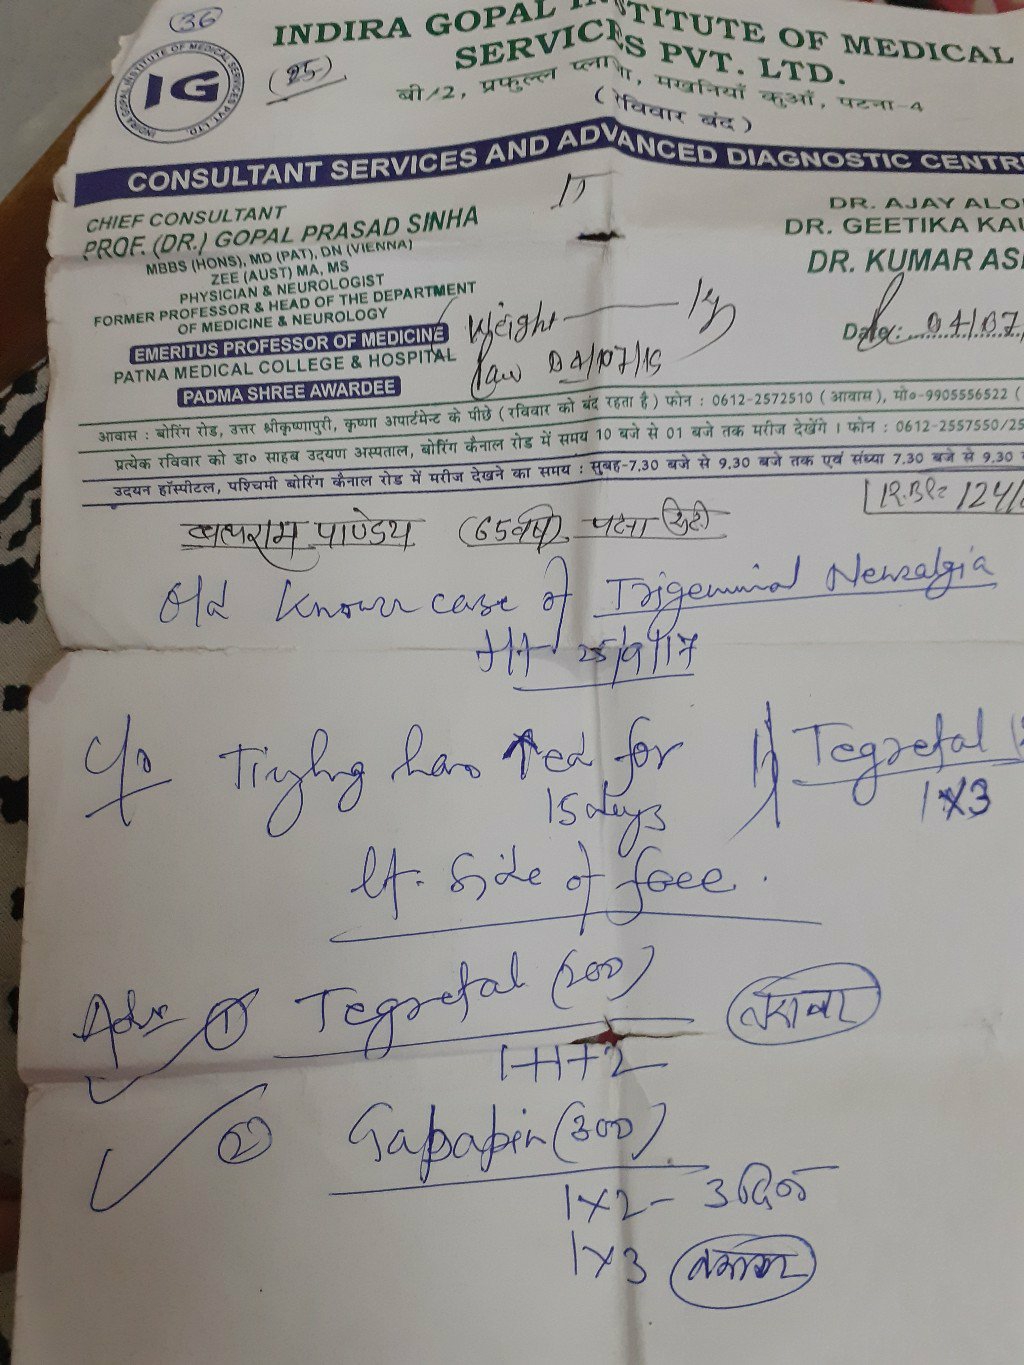 36
(25)
INDIRA GOPAL INSTITUTE OF MEDICAL
SERVICES PVT. LTD.
बी/2, प्रफुल्ल प्लाजा, मखनियाँ कुआँ, पटना-4
(रविवार बंद)
INDIRA GOPAL INSTITUTE OF MEDICAL SERVICES PVT. LTD.
IG
CONSULTANT SERVICES AND ADVANCED DIAGNOSTIC CENTRE
CHIEF CONSULTANT
PROF. (DR.) GOPAL PRASAD SINHA
MBBS (HONS), MD (PAT), DN (VIENNA)
ZEE (AUST) MA, MS
PHYSICIAN & NEUROLOGIST
FORMER PROFESSOR & HEAD OF THE DEPARTMENT
OF MEDICINE & NEUROLOGY
EMERITUS PROFESSOR OF MEDICINE
PATNA MEDICAL COLLEGE & HOSPITAL
PADMA SHREE AWARDEE
DR. AJAY ALO
DR. GEETIKA KAU
DR. KUMAR AS
Weight
04/07/19
Date: 04/07
आवास : बोरिंग रोड, उत्तर श्रीकृष्णापुरी, कृष्णा अपार्टमेन्ट के पीछे ( रविवार को बंद रहता है ) फोन : 0612-2572510 ( आवास ), मो०-9905556522 (
प्रत्येक रविवार को डा० साहब उदयण अस्पताल, बोरिंग कैनाल रोड में समय 10 बजे से 01 बजे तक मरीज देखेंगे । फोन : 0612-2557550/25
उदयन हॉस्पीटल, पश्चिमी बोरिंग कैनाल रोड में मरीज देखने का समय : सुबह-7.30 बजे से 9.30 बजे तक एवं संध्या 7.30 बजे से 9.30
124/
पाण्डेय (65वर्ष) पटना सिटी
Old Known case of Trigeminal Neuralgia
25/9/17
C/o Tingling has ↑ed for
15 days
Lt. Side of face.
1) Tegretal (2
1x3
Adv ① Tegretal (200)
1+1+2
लगातार
② Gabapin (300)
1x2 - 3 दिन
1x3 लगातार